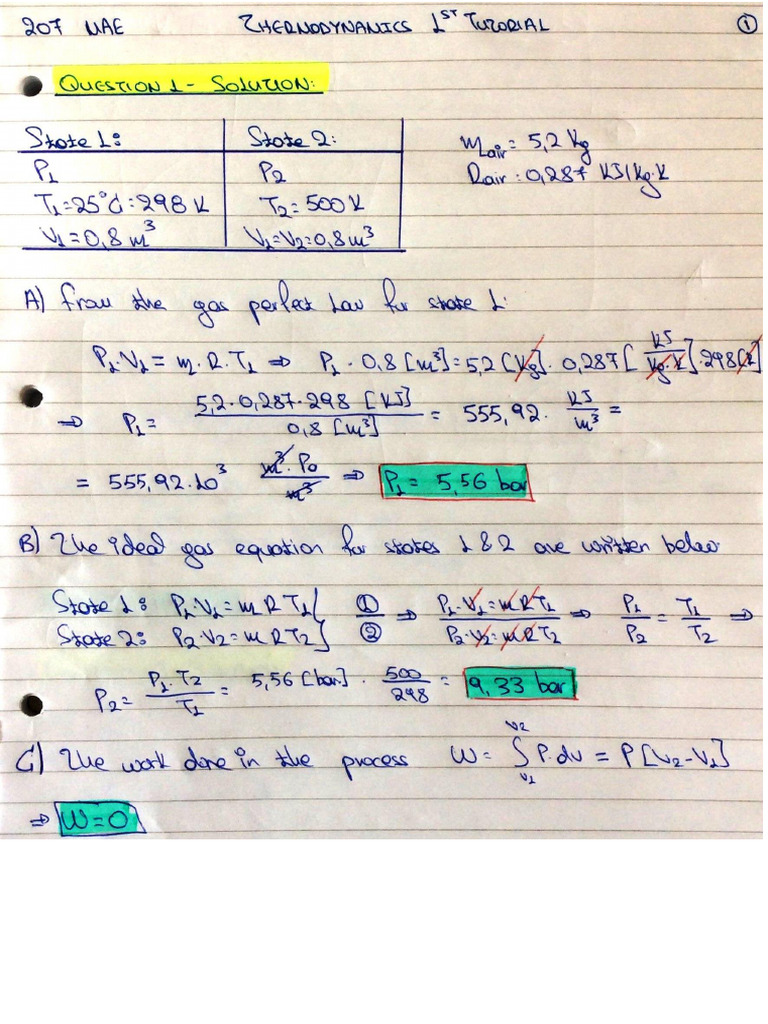 207 MAE THERMODYNAMICS 1ST TUTORIAL ①
QUESTION 1 - SOLUTION:
State 1: State 2: mair = 5,2 kg
P1 P2 Rair = 0,287 KJ/kg·K
T1=25°C=298 K T2=500 K
V1=0,8 m³ V1=V2=0,8 m³
A) From the gas perfect law for state 1:
P1·V1 = m·R·T1 ⇒ P1 · 0,8 [m³] = 5,2 [kg] · 0,287 [KJ/kg·K] · 298 [K]
⇒ P1 = 5,2·0,287·298 [KJ] / 0,8 [m³] = 555,92 · KJ/m³ =
= 555,92·10³ m³·Pa/m³ ⇒ P1 = 5,56 bar
B) The ideal gas equation for states 1 & 2 are written below
State 1: P1·V1 = m R T1 } ① ⇒ P1·V1 = m R T1 / P2·V2 = m R T2 ⇒ P1/P2 = T1/T2 ⇒
State 2: P2·V2 = m R T2 } ②
P2 = P1·T2/T1 = 5,56 [bar] · 500/298 = 9,33 bar
C) The work done in the process W = ∫V1V2 P·dv = P [V2-V1]
⇒ W=0